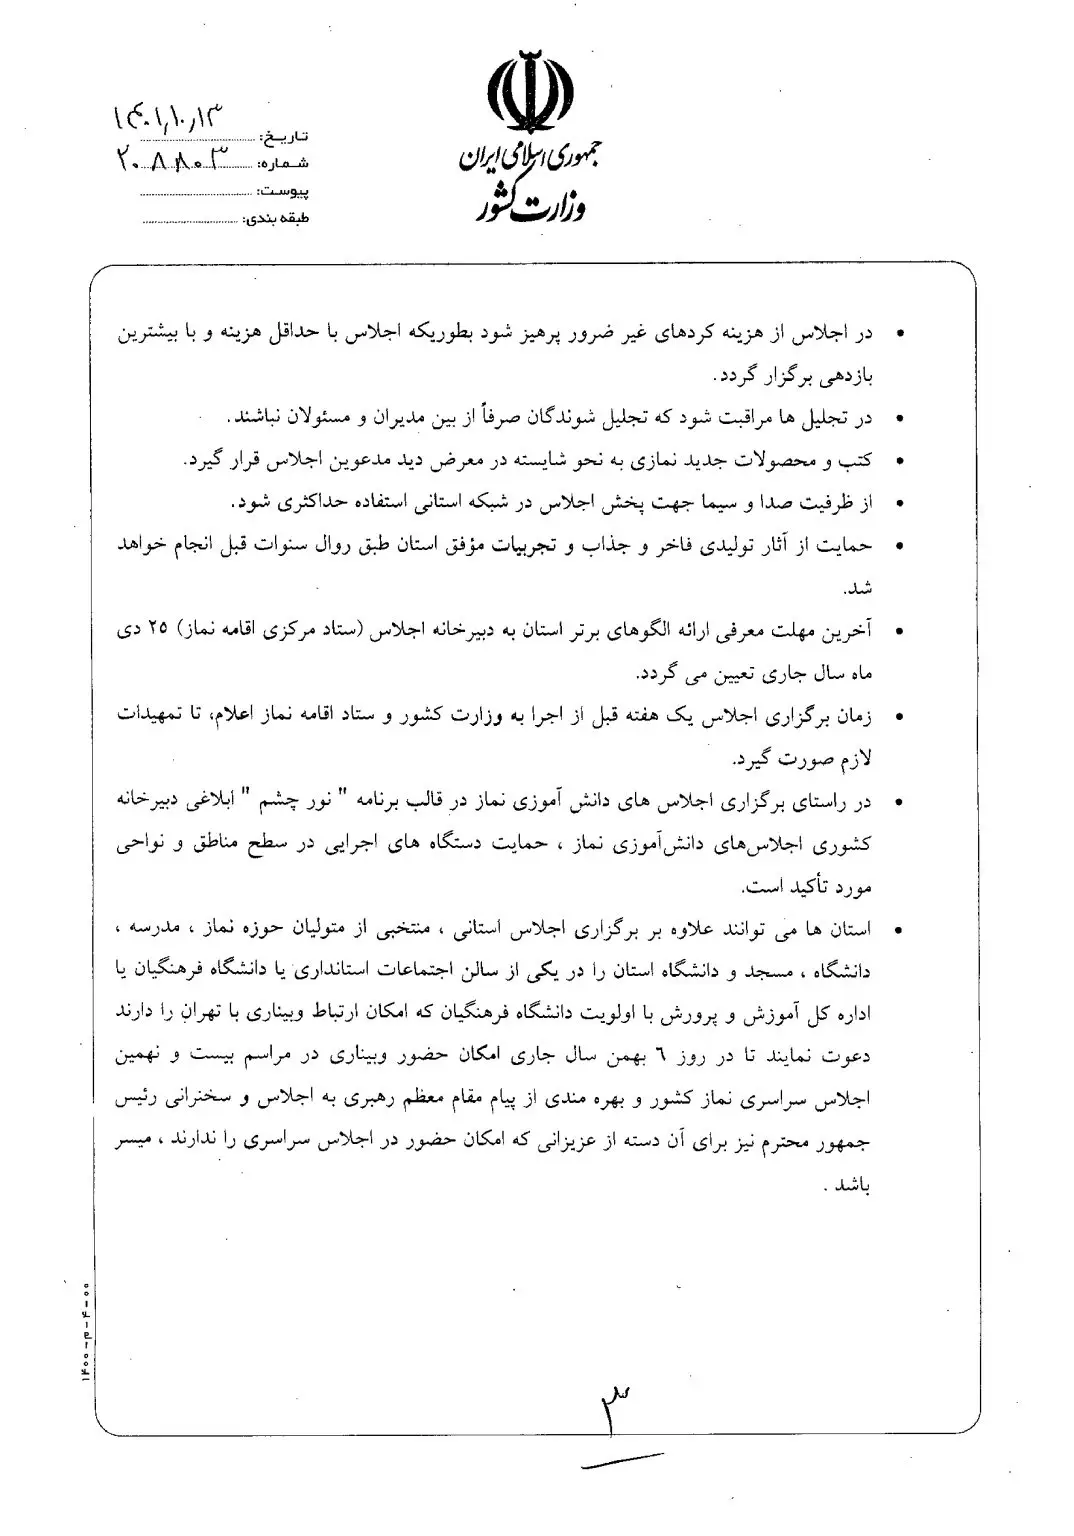 جمهوری اسلامی ایران
وزارت کشور
تاریخ: ۱۴۰۱٫۱۰٫۱۳
شماره: ۲۰۸۸۰۳
پیوست:
طبقه بندی:
• در اجلاس از هزینه کردهای غیر ضرور پرهیز شود بطوریکه اجلاس با حداقل هزینه و با بیشترین
بازدهی برگزار گردد.
• در تجلیل ها مراقبت شود که تجلیل شوندگان صرفاً از بین مدیران و مسئولان نباشند.
• کتب و محصولات جدید نمازی به نحو شایسته در معرض دید مدعوین اجلاس قرار گیرد.
• از ظرفیت صدا و سیما جهت پخش اجلاس در شبکه استانی استفاده حداکثری شود.
• حمایت از آثار تولیدی فاخر و جذاب و تجربیات مؤفق استان طبق روال سنوات قبل انجام خواهد
شد.
• آخرین مهلت معرفی ارائه الگوهای برتر استان به دبیرخانه اجلاس (ستاد مرکزی اقامه نماز) ۲۵ دی
ماه سال جاری تعیین می گردد.
• زمان برگزاری اجلاس یک هفته قبل از اجرا به وزارت کشور و ستاد اقامه نماز اعلام، تا تمهیدات
لازم صورت گیرد.
• در راستای برگزاری اجلاس های دانش آموزی نماز در قالب برنامه " نور چشم " ابلاغی دبیرخانه
کشوری اجلاس‌های دانش‌آموزی نماز ، حمایت دستگاه های اجرایی در سطح مناطق و نواحی
مورد تأکید است.
• استان ها می توانند علاوه بر برگزاری اجلاس استانی ، منتخبی از متولیان حوزه نماز ، مدرسه ،
دانشگاه ، مسجد و دانشگاه استان را در یکی از سالن اجتماعات استانداری یا دانشگاه فرهنگیان یا
اداره کل آموزش و پرورش با اولویت دانشگاه فرهنگیان که امکان ارتباط وبیناری با تهران را دارند
دعوت نمایند تا در روز ۶ بهمن سال جاری امکان حضور وبیناری در مراسم بیست و نهمین
اجلاس سراسری نماز کشور و بهره مندی از پیام مقام معظم رهبری به اجلاس و سخنرانی رئیس
جمهور محترم نیز برای آن دسته از عزیزانی که امکان حضور در اجلاس سراسری را ندارند ، میسر
باشد .
۱۴۰۰-م-۴-۰۰
۳